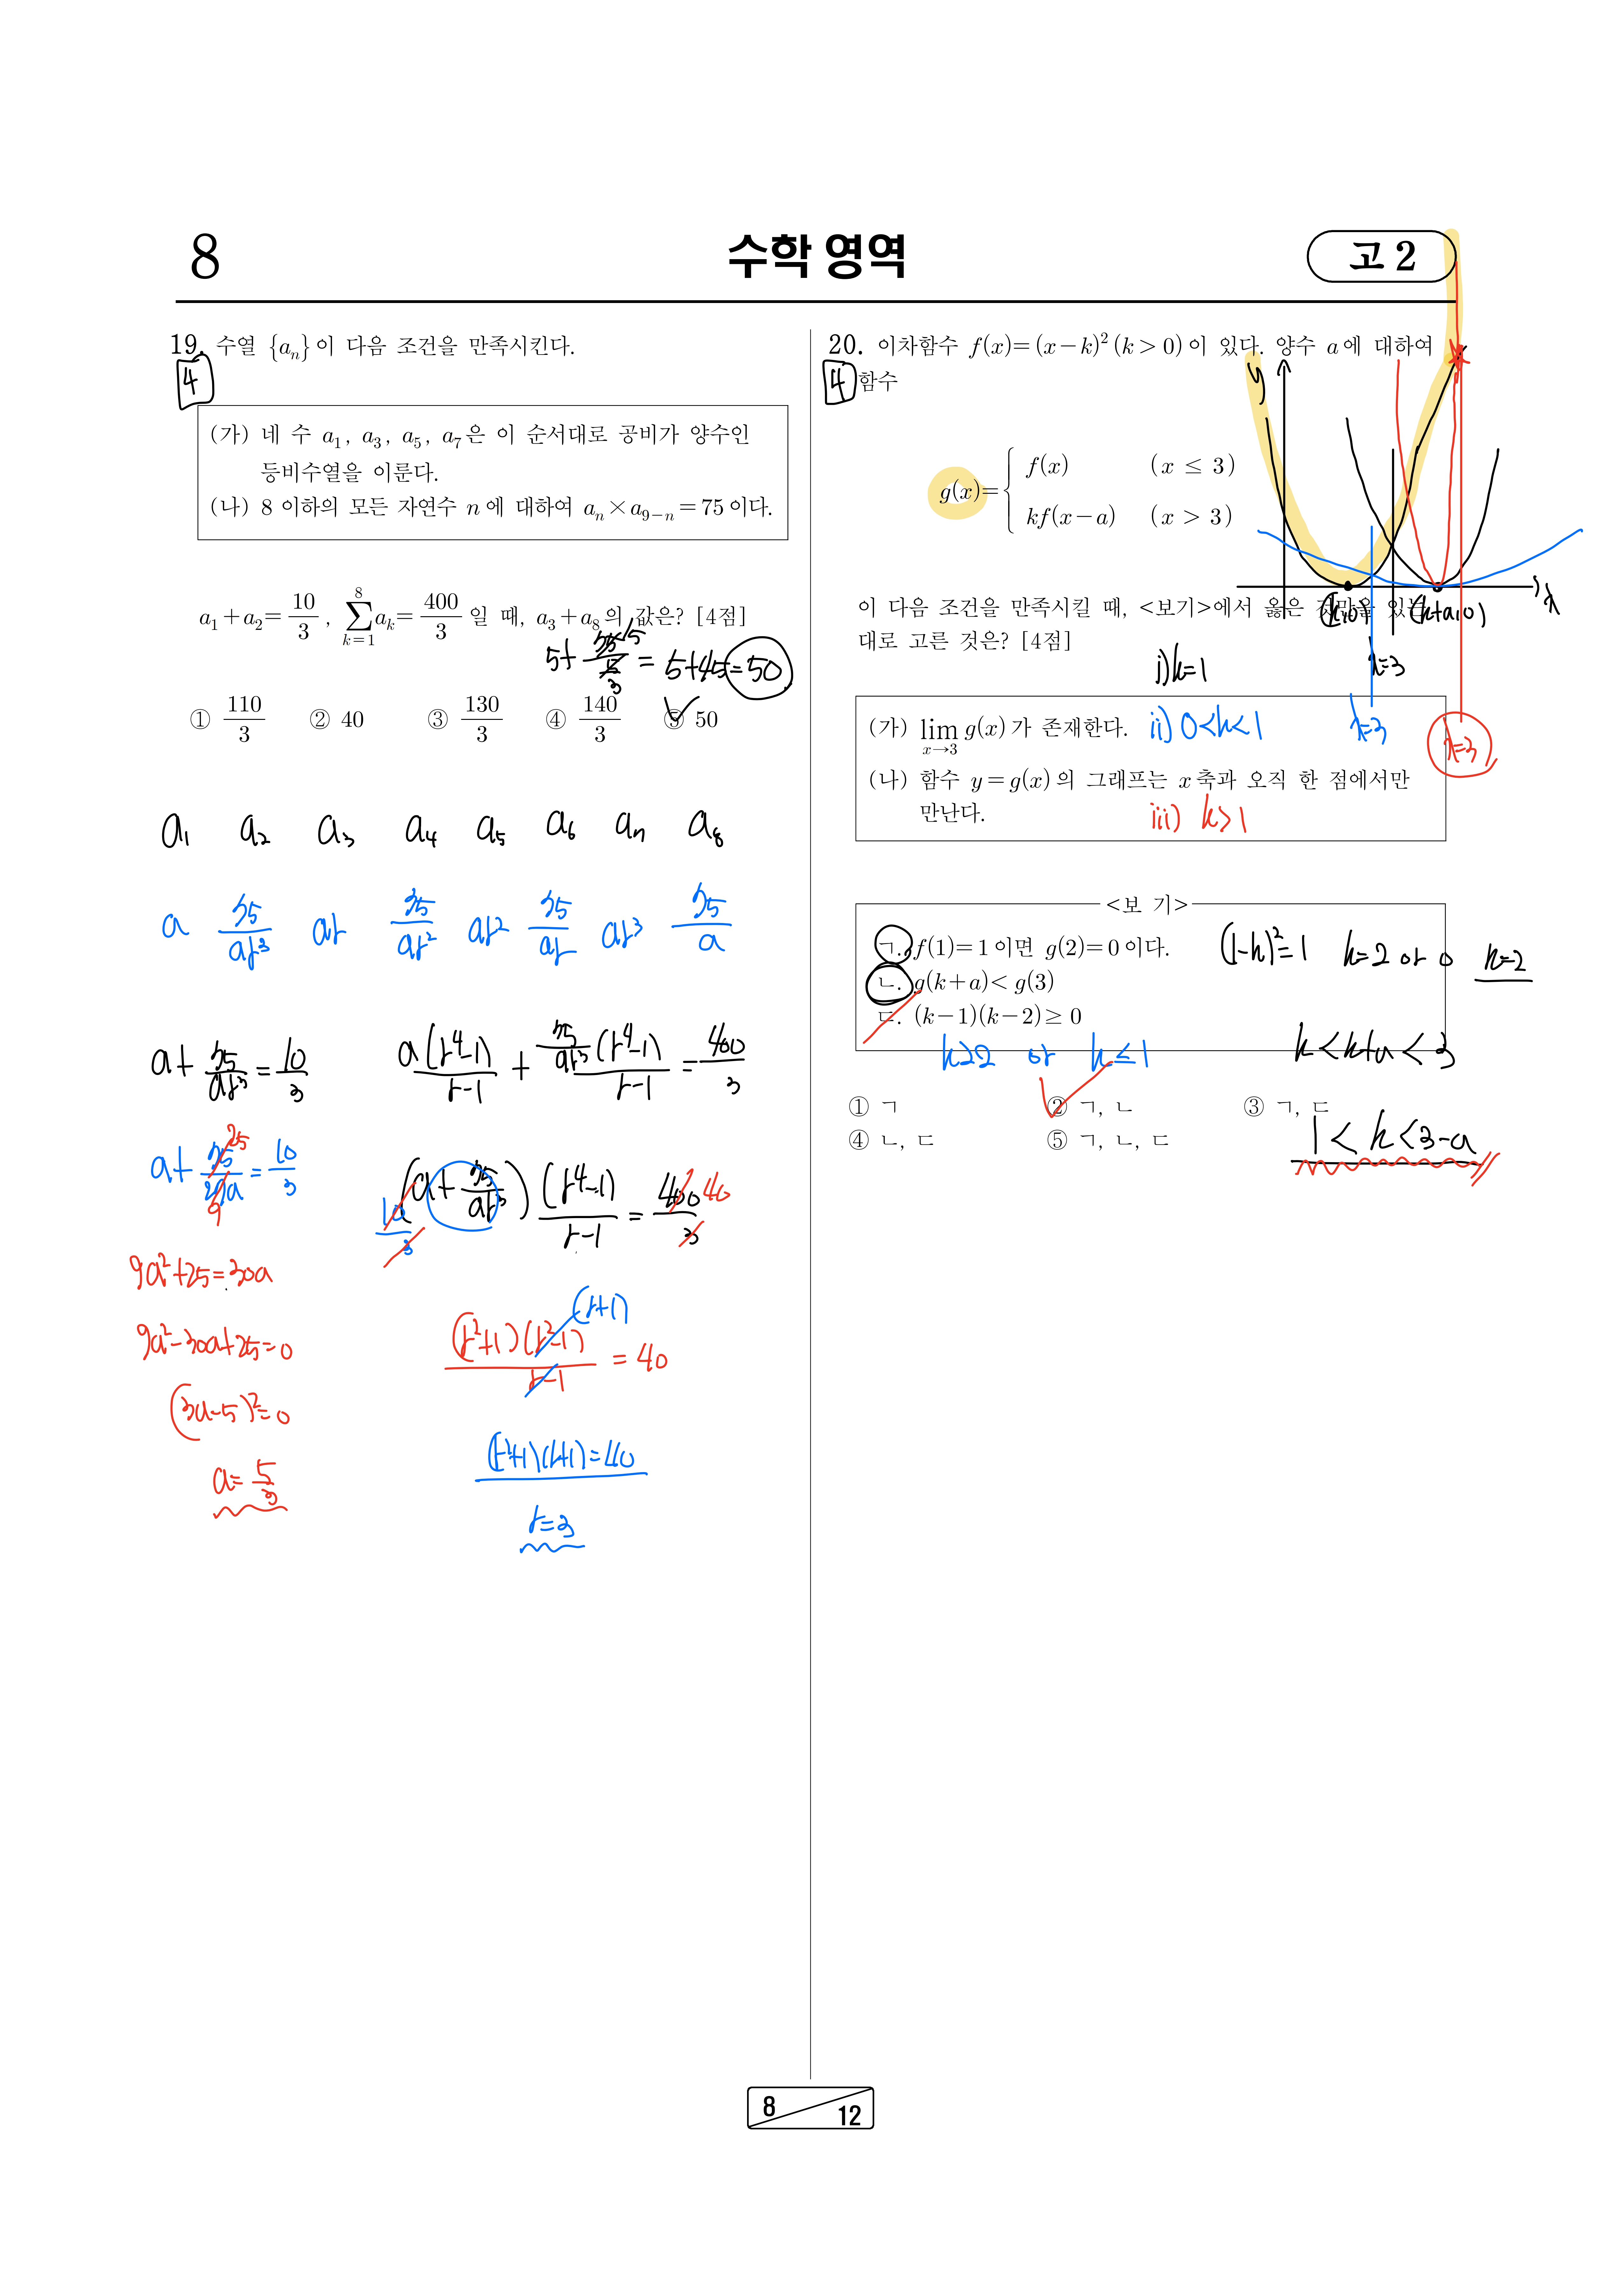 8
수학 영역
고 2
19. 수열 {aₙ}이 다음 조건을 만족시킨다.
4
(가) 네 수 a₁, a₃, a₅, a₇은 이 순서대로 공비가 양수인
등비수열을 이룬다.
(나) 8 이하의 모든 자연수 n에 대하여 aₙ×a₉₋ₙ=75이다.
a₁+a₂=10/3, ∑_{k=1}^{8} aₖ=400/3 일 때, a₃+a₈의 값은? [4점]
= 5+45=50
① 110/3 ② 40 ③ 130/3 ④ 140/3 ⑤ 50
a₁ a₂ a₃ a₄ a₅ a₆ a₇ a₈
a 75/ar³ ar 75/ar² ar² 75/ar ar³ 75/a
a+75/ar³=10/3
a(r⁴-1)/(r-1) + 75/ar³(r⁴-1)/(r-1) = 400/3
a+75/27a=10/3
25
9
(a+75/ar³)(r⁴-1)/(r-1) = 400/3
40
10/3
9a²+25=30a
9a²-30a+25=0
(3a-5)²=0
a=5/3
(r²+1)(r²-1)/(r-1) = 40
(r+1)
(r²+1)(r+1)=40
r=3
20. 이차함수 f(x)=(x-k)² (k>0)이 있다. 양수 a에 대하여
4
함수
g(x)={ f(x) (x ≤ 3)
kf(x-a) (x > 3)
y
x
(k,0) (k+a,0)
이 다음 조건을 만족시킬 때, <보기>에서 옳은 것만을 있는
대로 고른 것은? [4점]
i) k=1
x=3
(가) lim_{x→3} g(x)가 존재한다.
ii) 0<k<1
x=3
x=3
(나) 함수 y=g(x)의 그래프는 x축과 오직 한 점에서만
만난다.
iii) k>1
<보 기>
ㄱ. f(1)=1이면 g(2)=0이다.
(1-k)²=1 k=2 or 0 k=2
ㄴ. g(k+a)< g(3)
ㄷ. (k-1)(k-2)≥0
k≥2 or k≤1
k<k+a<3
① ㄱ ② ㄱ, ㄴ ③ ㄱ, ㄷ
④ ㄴ, ㄷ ⑤ ㄱ, ㄴ, ㄷ
1<k<3-a
8
12